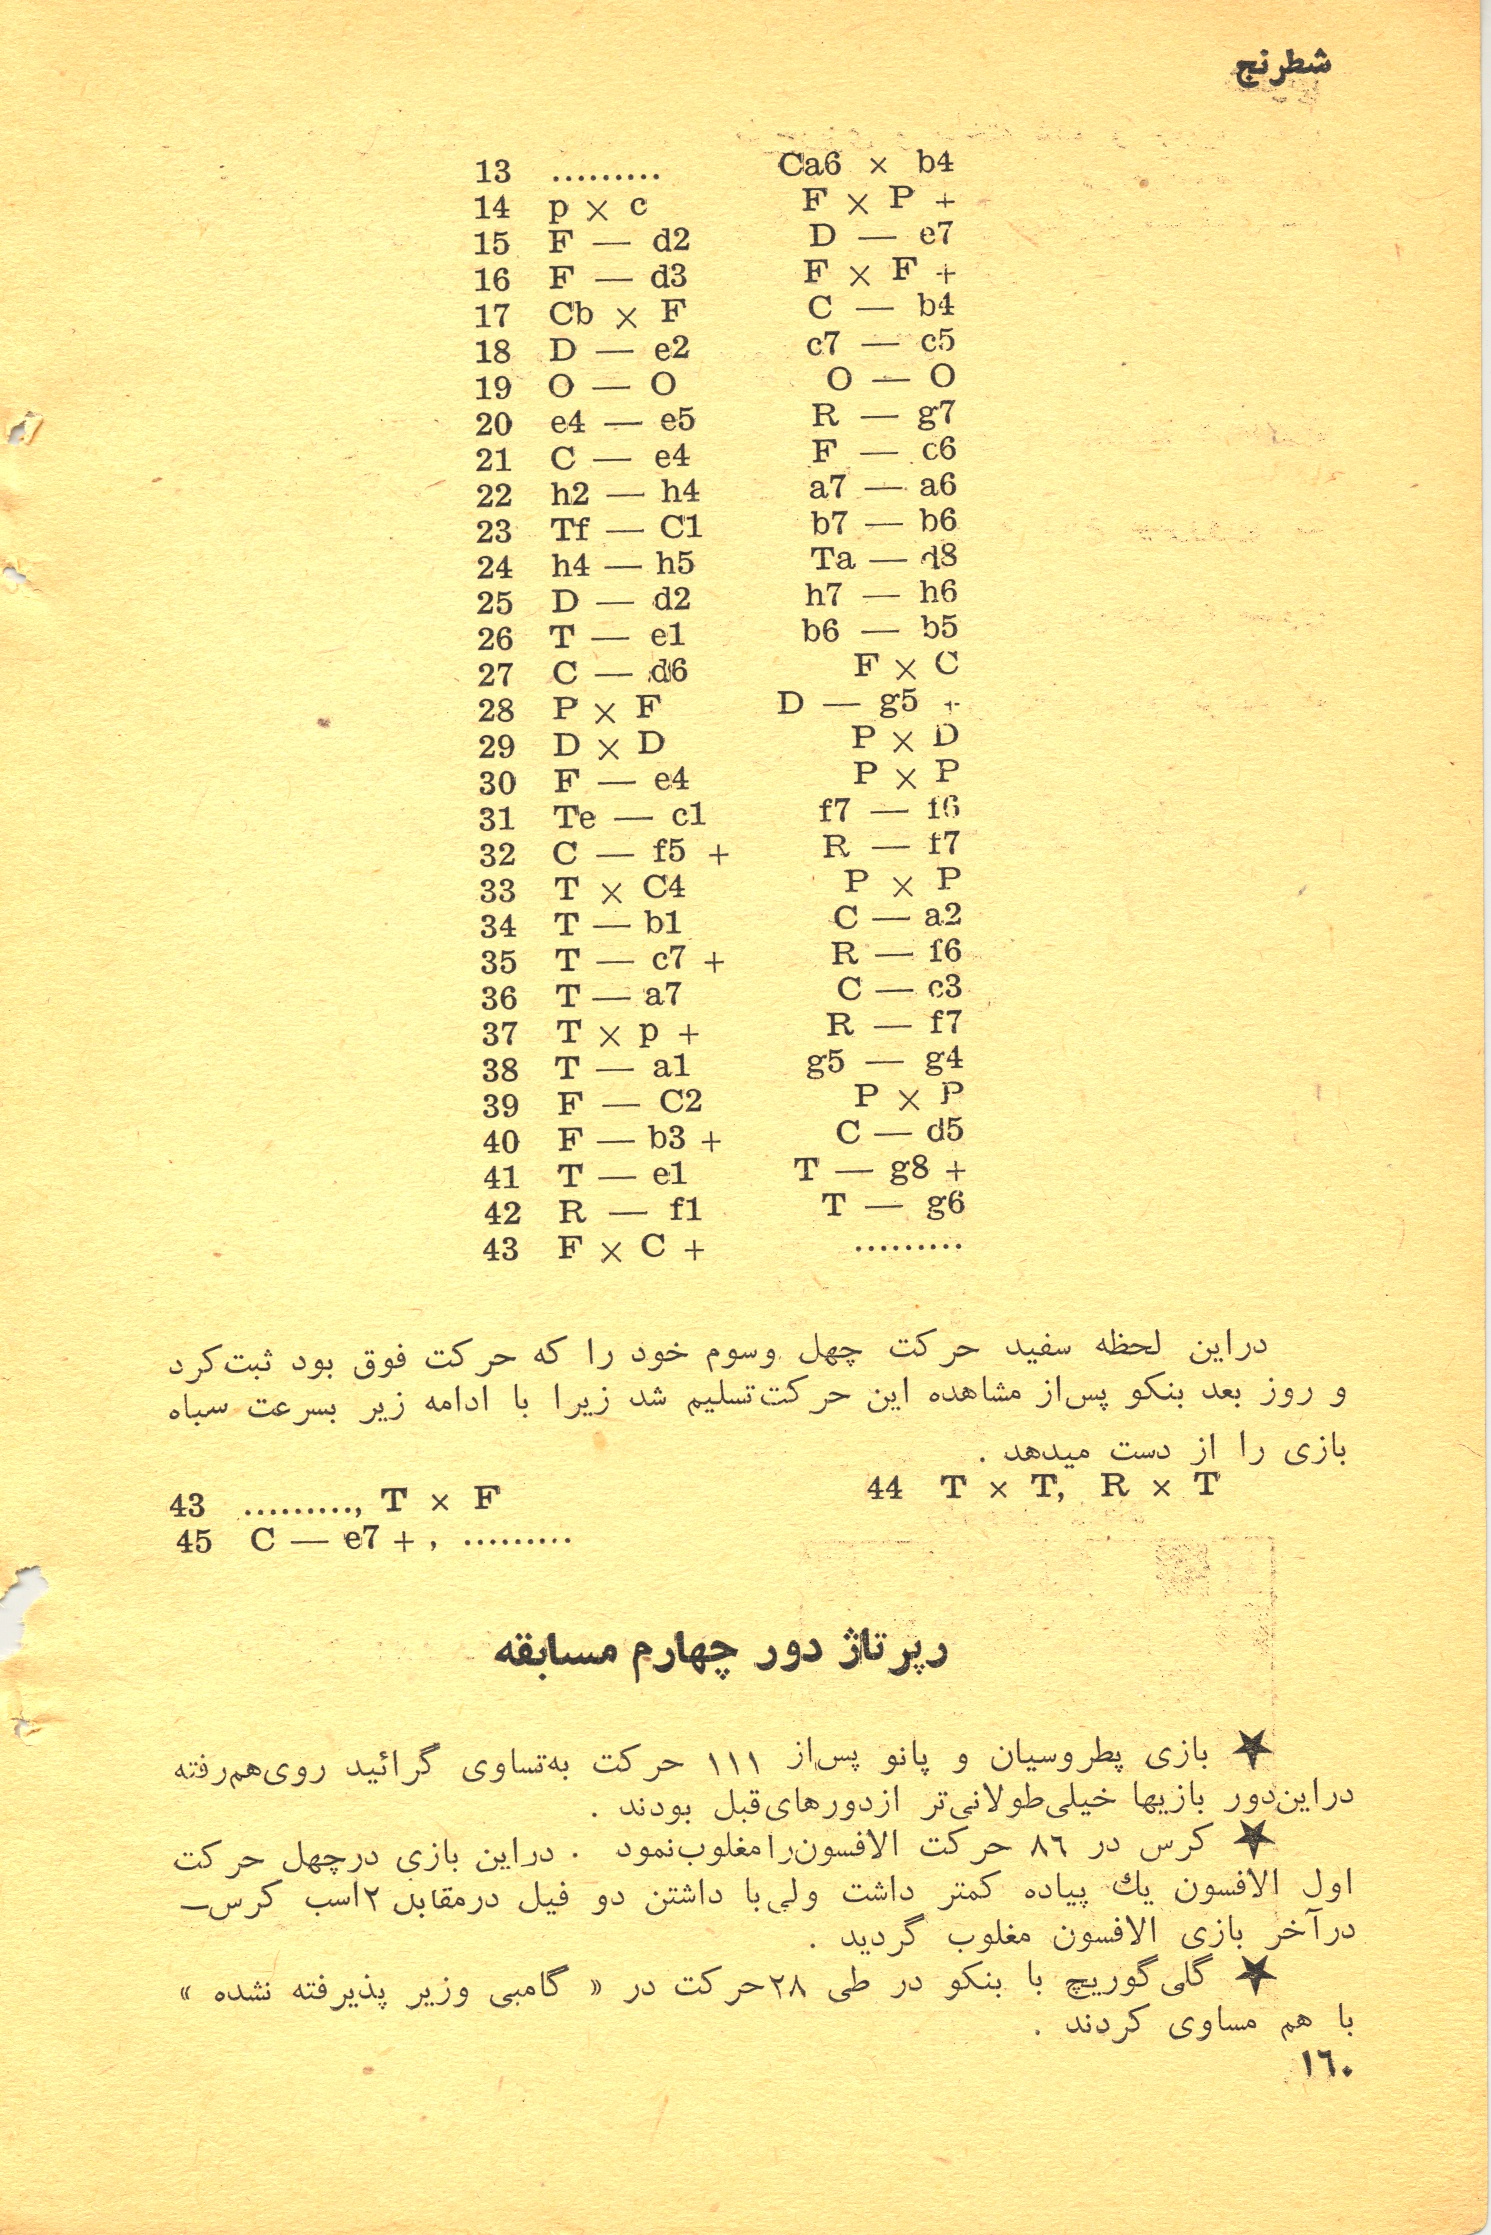 شطرنج
13 ......... Ca6 × b4
14 p × c F × P +
15 F — d2 D — e7
16 F — d3 F × F +
17 Cb × F C — b4
18 D — e2 c7 — c5
19 O — O O — O
20 e4 — e5 R — g7
21 C — e4 F — c6
22 h2 — h4 a7 — a6
23 Tf — C1 b7 — b6
24 h4 — h5 Ta — d8
25 D — d2 h7 — h6
26 T — e1 b6 — b5
27 C — d6 F × C
28 P × F D — g5 +
29 D × D P × D
30 F — e4 P × P
31 Te — c1 f7 — f6
32 C — f5 + R — f7
33 T × C4 P × P
34 T — b1 C — a2
35 T — c7 + R — f6
36 T — a7 C — c3
37 T × p + R — f7
38 T — a1 g5 — g4
39 F — C2 P × P
40 F — b3 + C — d5
41 T — e1 T — g8 +
42 R — f1 T — g6
43 F × C + .........
دراین لحظه سفید حرکت چهل وسوم خود را که حرکت فوق بود ثبت‌کرد
و روز بعد بنکو پس‌از مشاهده این حرکت‌تسلیم شد زیرا با ادامه زیر بسرعت سیاه
بازی را از دست میدهد .
43 ........., T × F 44 T × T, R × T
45 C — e7 + , .........
رپرتاژ دور چهارم مسابقه
★ بازی پطروسیان و پانو پس‌از ۱۱۱ حرکت به‌تساوی گرائید روی‌هم‌رفته
دراین‌دور بازیها خیلی‌طولانی‌تر ازدورهای‌قبل بودند .
★ کرس در ۸٦ حرکت الافسون‌رامغلوب‌نمود . دراین بازی درچهل حرکت
اول الافسون یك پیاده کمتر داشت ولی‌با داشتن دو فیل درمقابل ۲اسب کرس—
درآخر بازی الافسون مغلوب گردید .
★ گلی‌گوریچ با بنکو در طی ۲۸حرکت در « گامبی وزیر پذیرفته نشده »
با هم مساوی کردند .
۱٦۰